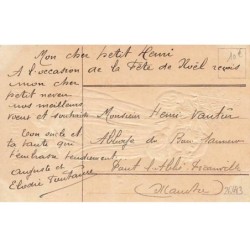 Mon cher petit Henri
A l'occasion de la fête de Noël reçois
mon cher
petit neveu
nos meilleurs
vœux et souhaits
Ton oncle et
ta tante qui
t'embrasse tendrement
Auguste et
Elodie
Monsieur Henri
Abbaye du Bon Sauveur
Pont l'Abbé Picauville
(Manche)